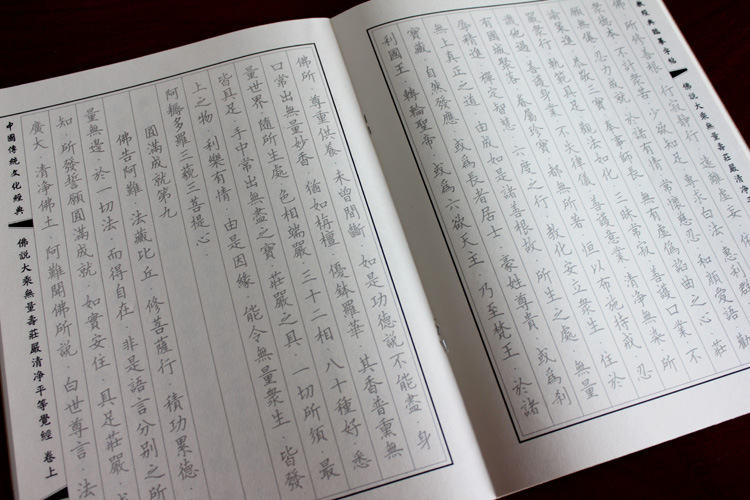 教經典臨摹字帖 佛說大乘無量壽莊嚴清淨平
善根 行寂靜行 遠離虛妄
眾德本 不計眾苦 少欲知足 專求白法 惠利群
願無倦 忍力成就 於諸有情 常懷慈忍 和顏愛語 勸
諭策進 恭敬三寶 奉事師長 無有虛偽諂曲之心 莊
嚴眾行 軌範具足 觀法如化 三昧常寂 善護口業 不
譏他過 善護身業 不失律儀 善護意業 清淨無染 所
有國城聚落 眷屬珍寶 都無所著 恒以布施持戒 忍
辱精進 禪定智慧 六度之行 教化安立眾生 住於
無上真正之道 由成如是諸善根故 所生之處 無量
寶藏 自然發應 或為長者居士 豪姓尊貴 或為剎
利國王 轉輪聖帝 或為六欲天主 乃至梵王 於諸
佛所 尊重供養 未曾間斷 如是功德說不能盡 身
口常出無量妙香 猶如栴檀 優鉢羅華 其香普熏無
量世界 隨所生處 色相端嚴 三十二相 八十種好 悉
皆具足 手中常出無盡之寶 莊嚴之具 一切所須 最
上之物 利樂有情 由是因緣 能令無量眾生 皆發
阿耨多羅三藐三菩提心
圓滿成就第九
佛告阿難 法藏比丘 修菩薩行 積功累德
量無邊 於一切法 而得自在 非是語言分別之所
知 所發誓願圓滿成就 如實安住 具足莊嚴 威
廣大 清淨佛土 阿難聞佛所說 白世尊言 法
中國傳統文化經典 佛說大乘無量壽莊嚴清淨平等覺經 卷上